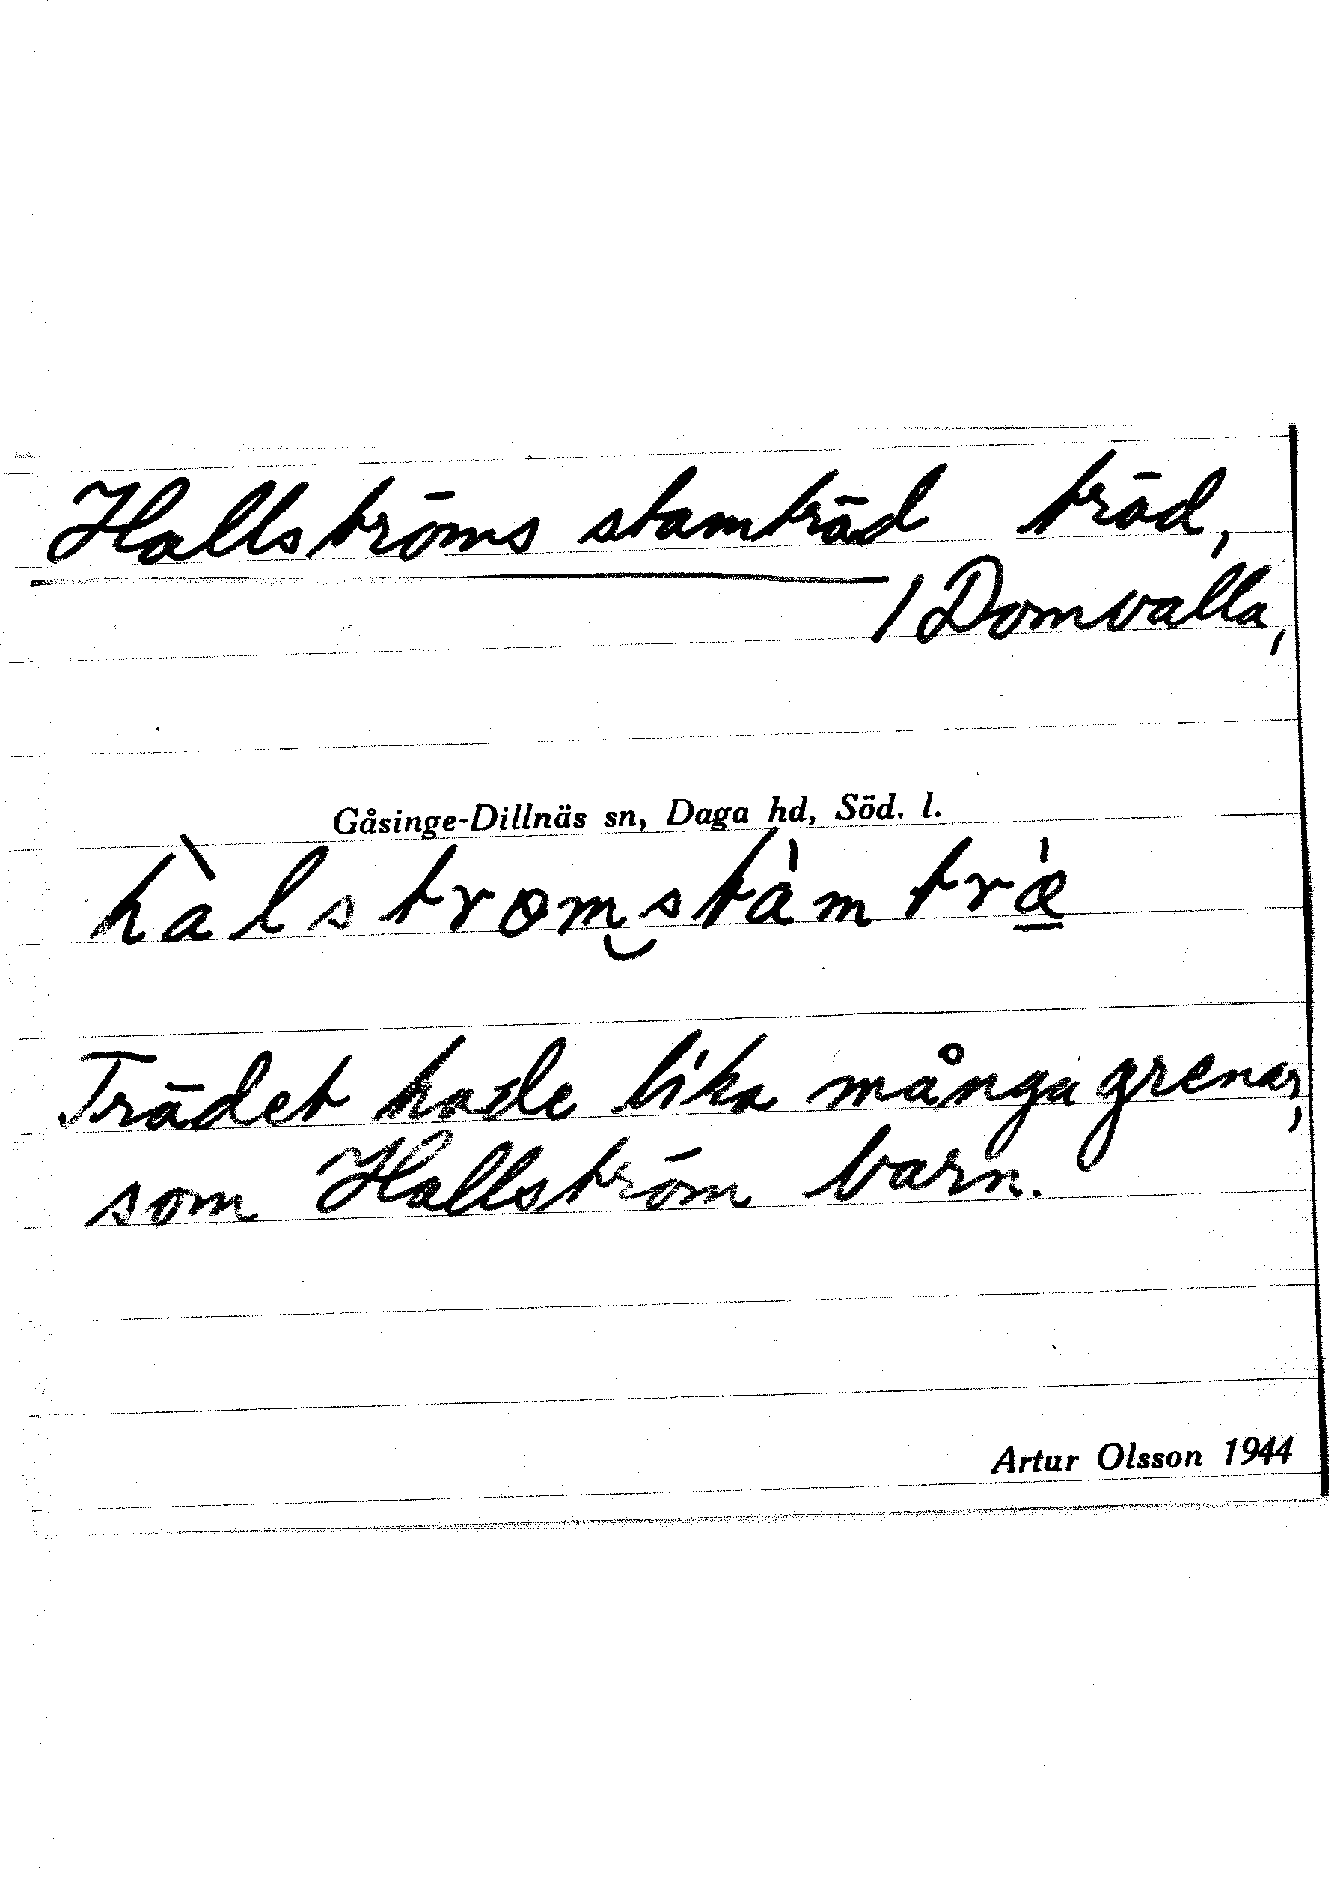 Hallströms stamträd träd,
/Domvalla,
Gåsinge-Dillnäs sn, Daga hd, Söd. l.
hàlstrøm̮stàmtræ̠̀
Trädet hade lika många grenar,
som Hallström barn.
Artur Olsson 1944